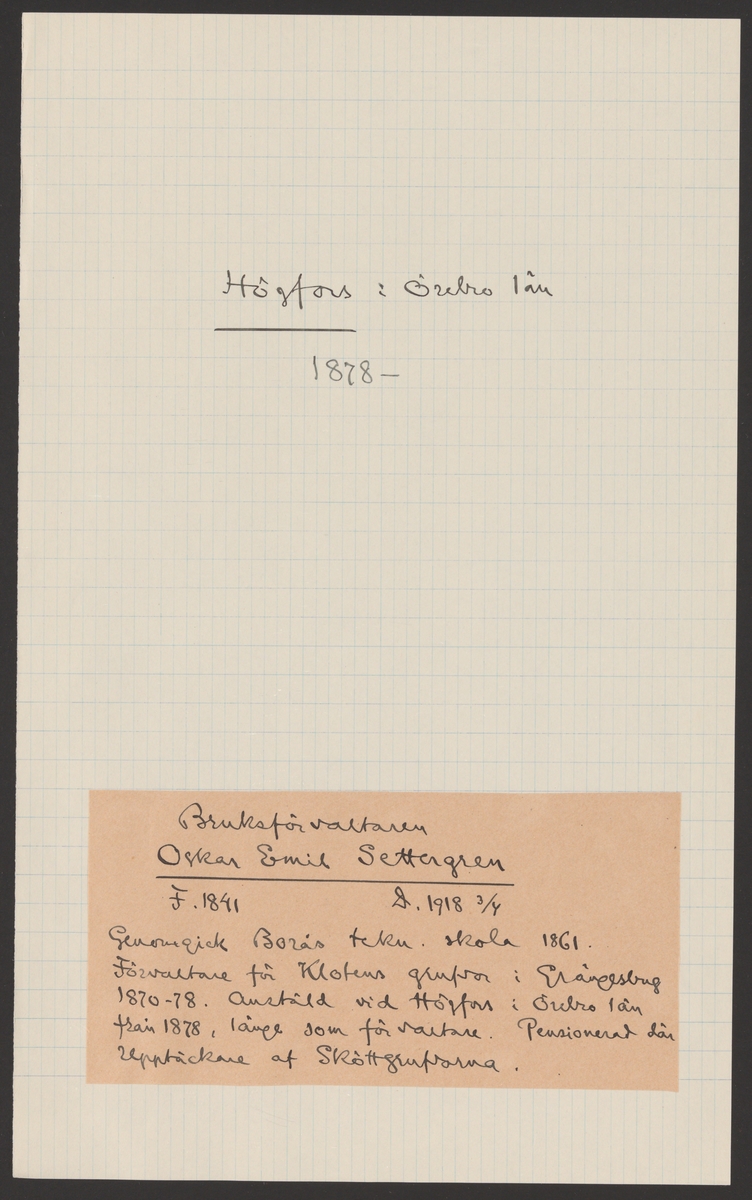 Högfors i Örebro län
1878–
Bruksförvaltaren
Oskar Emil Settergren
F. 1841 D. 1918 3/4
Genomgick Borås tekn. skola 1861.
Förvaltare för Klotens grufvor i Grängesbug
1870-78. Anstäld vid Högfors i Örebro län
från 1878, länge som förvaltare. Pensionerad där
Upptäckare af Sköttgrufvorna.